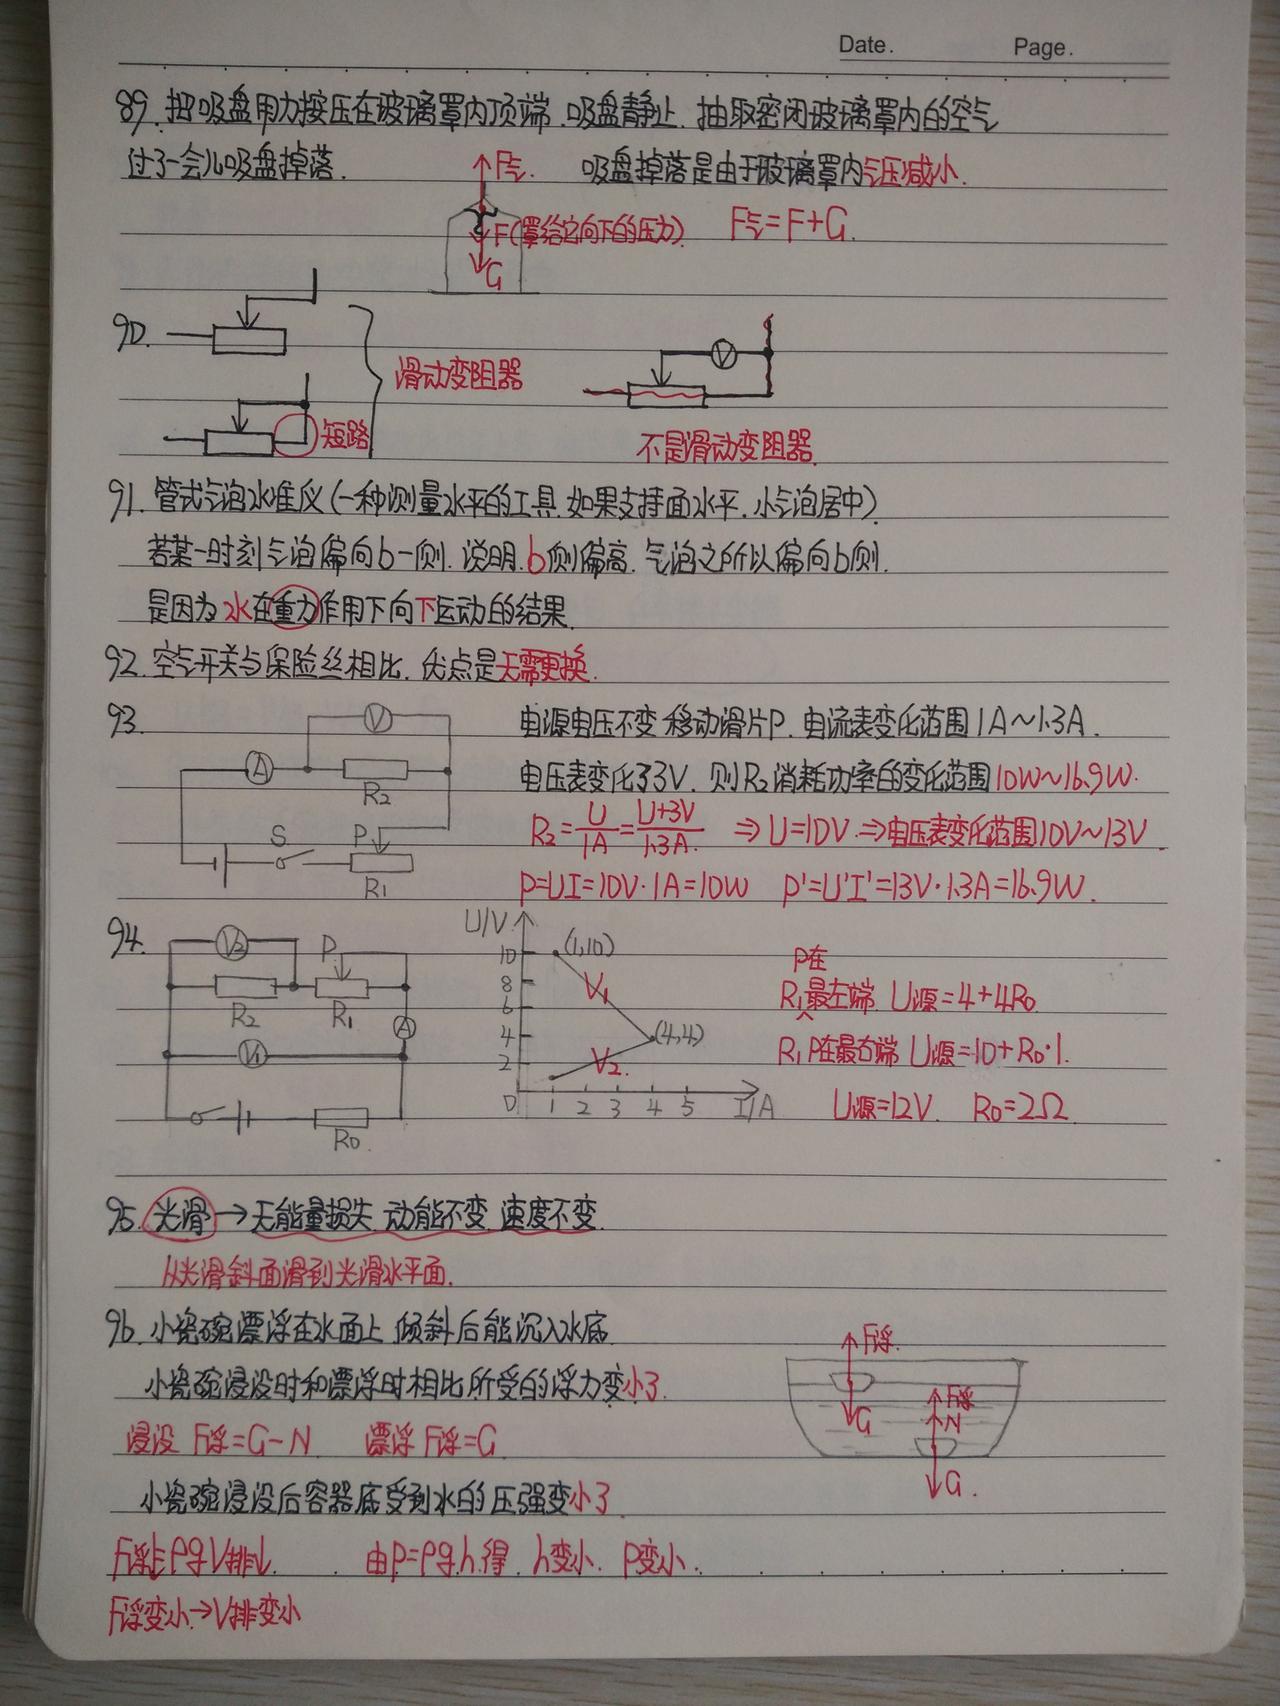 Date. Page.
89. 把吸盘用力按压在玻璃罩内顶端.吸盘静止.抽取密闭玻璃罩内的空气
过了一会儿吸盘掉落.
F气.
吸盘掉落是由于玻璃罩内气压减小.
F(罩给它向下的压力)
F气=F+G.
G
90.
滑动变阻器
V
短路
不是滑动变阻器
91. 管式气泡水准仪(一种测量水平的工具.如果支持面水平.小气泡居中)
若某一时刻气泡偏向b一侧.说明.b侧偏高.气泡之所以偏向b侧.
是因为水在重力作用下向下运动的结果.
92. 空气开关与保险丝相比.优点是无需更换.
93.
V
A
R2
S
P
R1
电源电压不变 移动滑片P.电流表变化范围1A~1.3A.
电压表变化了3V.则R2消耗功率的变化范围10W~16.9W.
R2=U/1A=U+3V/1.3A ⇒U=10V⇒电压表变化范围10V~13V
P=UI=10V·1A=10W P'=U'I'=13V·1.3A=16.9W.
94.
V2
P
R2
R1
A
V1
R0
U/V
10
8
6
4
2
0 1 2 3 4 5 I/A
(1,10)
V1
(4,4)
V2.
P在
R1最左端 U源=4+4R0
R1P在最右端 U源=10+R0·1.
U源=12V. R0=2Ω
95. 光滑→无能量损失 动能不变 速度不变.
从光滑斜面滑到光滑水平面.
96. 小瓷碗漂浮在水面上 倾斜后能沉入水底
小瓷碗浸没时和漂浮时相比所受的浮力变小了.
浸没 F浮=G-N 漂浮 F浮=G
F浮.
G
F浮
N
G.
小瓷碗浸没后容器底受到水的压强变小了
F浮↓=ρgV排↓. 由p=ρgh.得.h变小.p变小.
F浮变小→V排变小